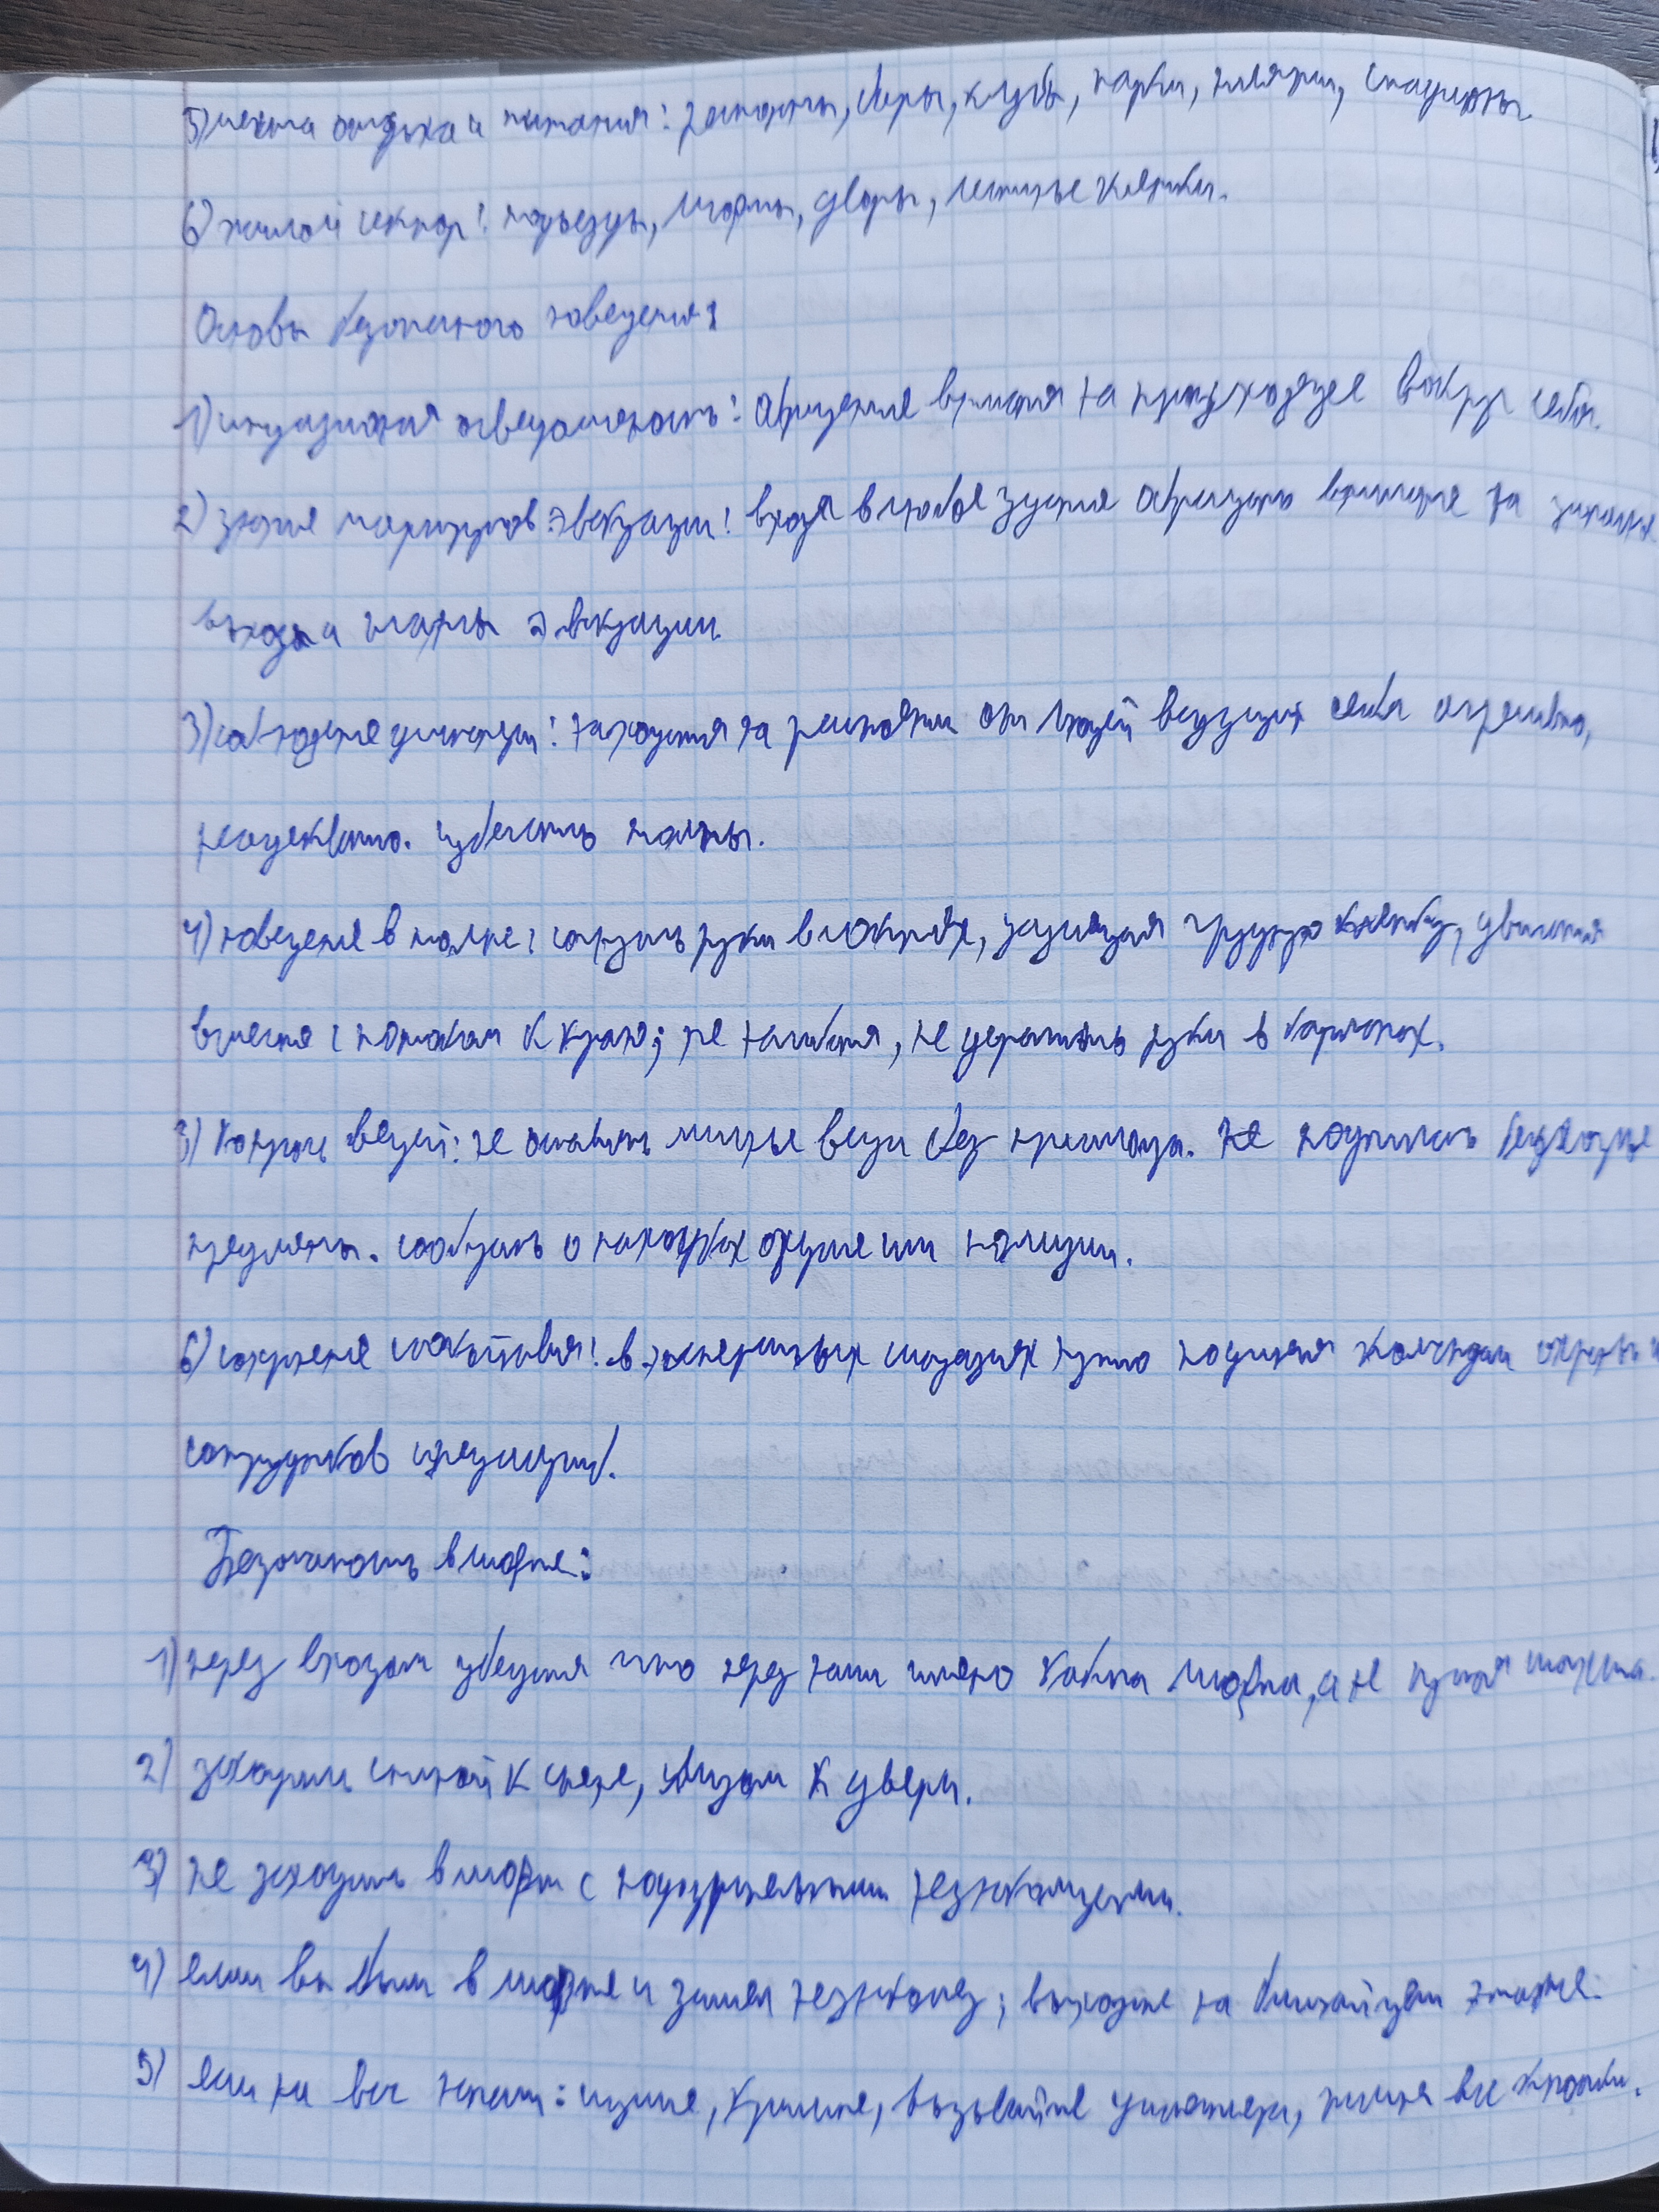 5) места отдыха и питания: рестораны, бары, клубы, парки, пляжи, стадионы.
6) жилой сектор: подъезды, лифты, дворы, лестничные клетки.
Основы безопасного поведения
1) ситуационная осведомленность: обращение внимания на происходящее вокруг себя.
2) знание маршрутов эвакуации: входя в любое здание обращать внимание на
выходы и планы эвакуации
3) соблюдение дистанции: находиться на расстоянии от людей ведущих себя агрессивно,
неадекватно. избегать толпы.
4) поведение в толпе: согнуть руки в локтях, защищая грудную клетку, двигаться
вместе с потоком к краю; не нагибаться, не держать руки в карманах.
5) контроль вещей: не оставлять личные вещи без присмотра. не поднимать бесхозные
предметы. сообщать о находках охране или полиции.
6) сохранение спокойствия: в экстренных ситуациях нужно подчиняться командам охраны и
сотрудников
Безопасность в лифте:
1) перед входом убедиться что перед вами именно кабина лифта, а не пустая шахта.
2) заходить спиной к стене, лицом к двери.
3) не заходить в лифт с подозрительными незнакомцами.
4) если вы были в лифте и зашел незнакомец; выходите на ближайшем этаже.
5) если на вас напали: кричите, вызывайте диспетчера, жмите все кнопки.